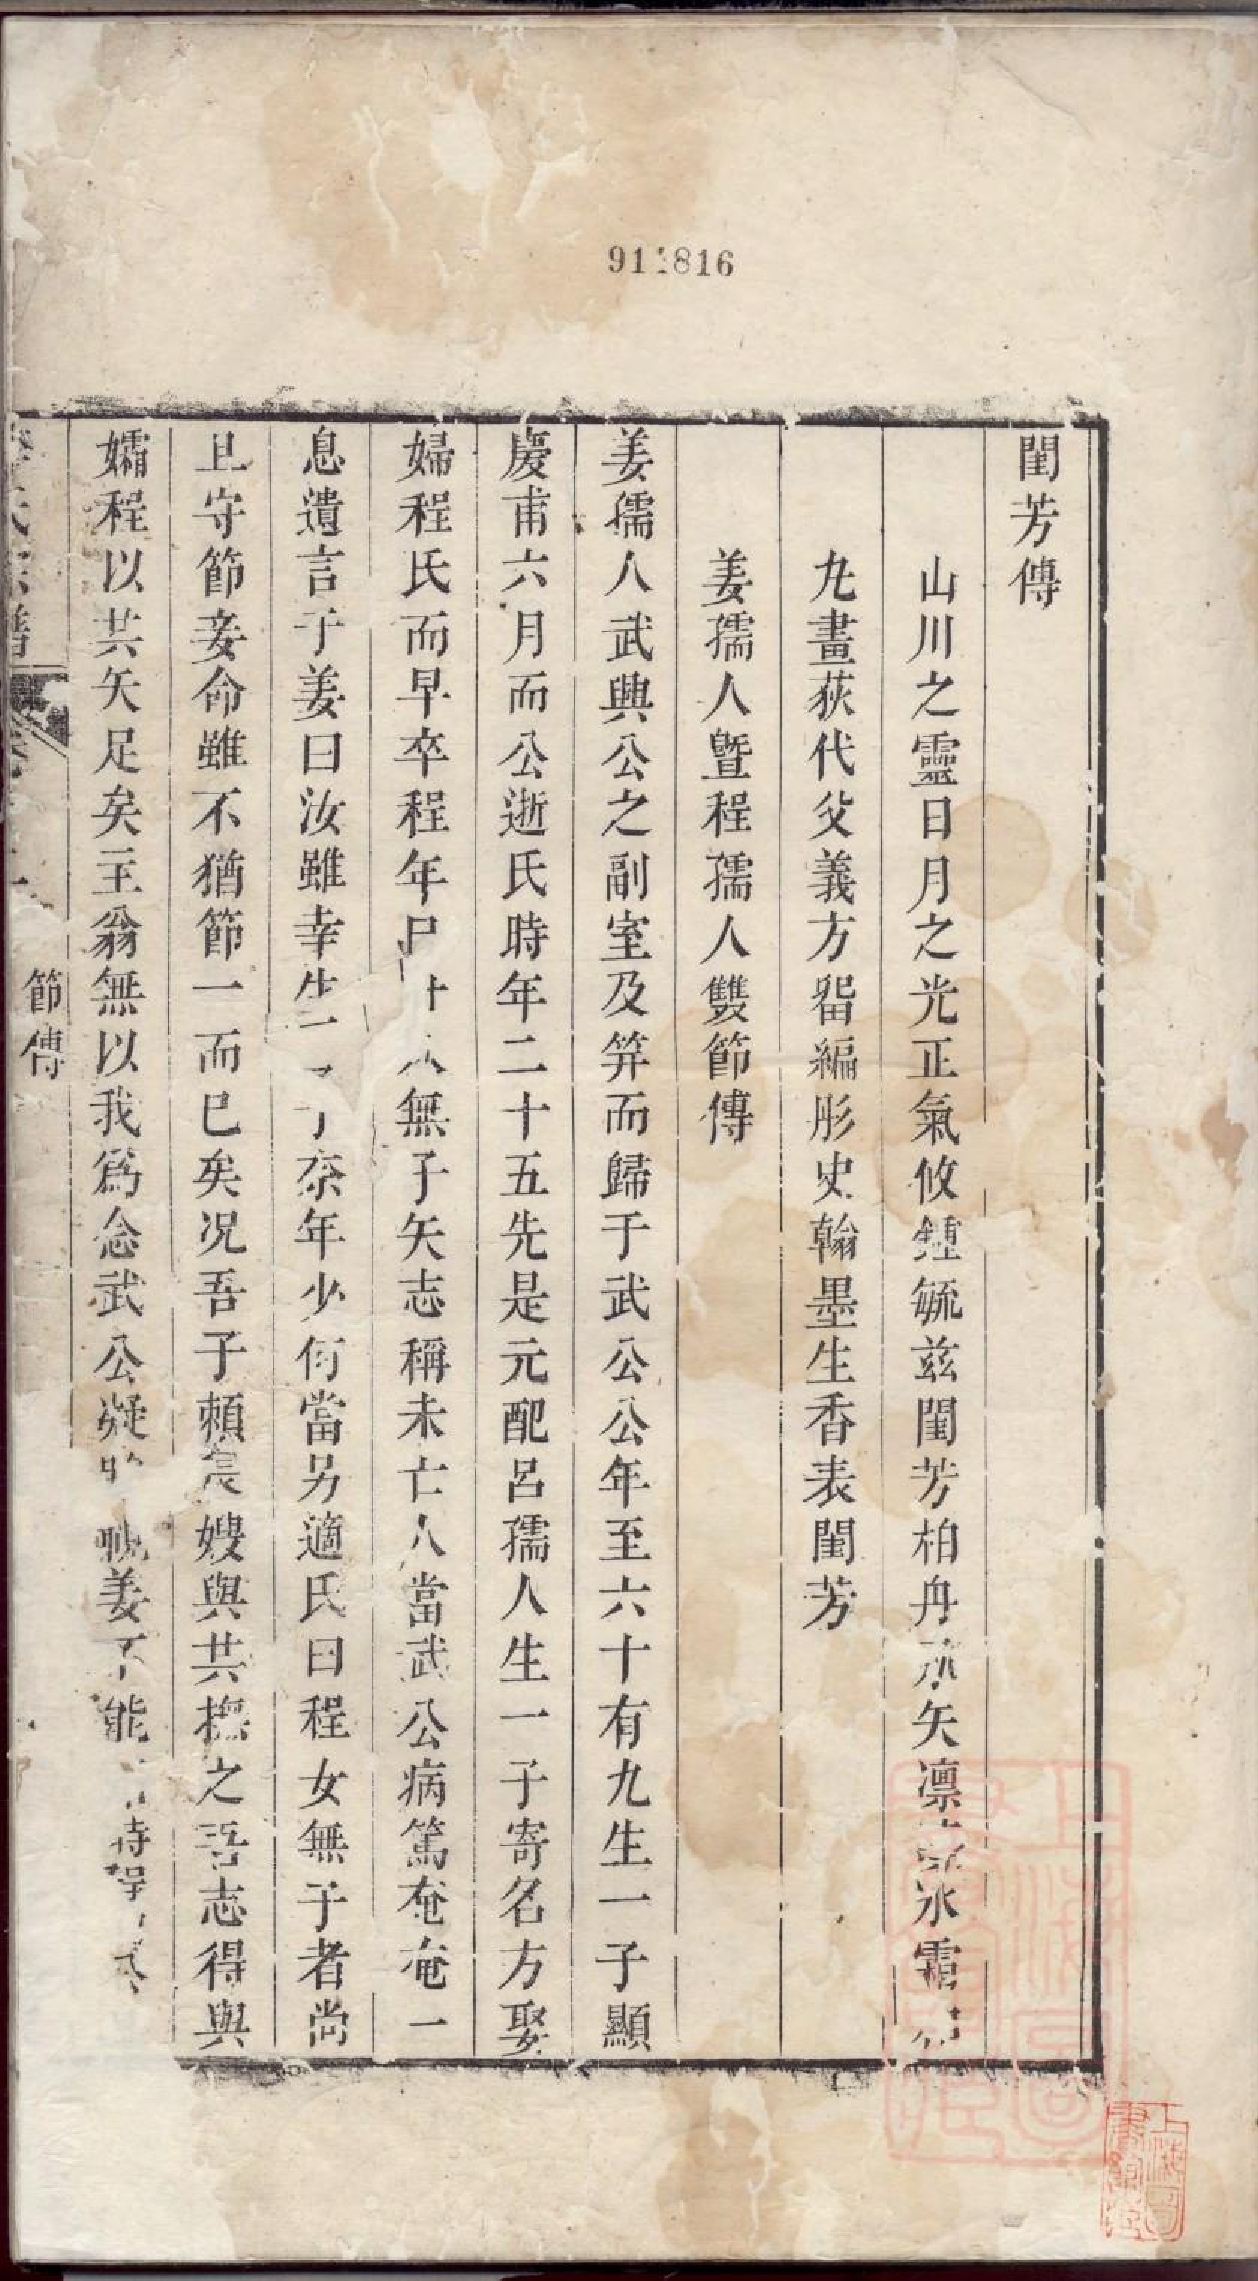 911816
閨芳傳
山川之靈日月之光正氣攸鍾毓兹閨芳柏舟 矢凛 氷霜
九畫荻代父義方留編彤史翰墨生香表閨芳
姜孺人曁程孺人雙節傳
姜孺人武興公之副室及笄而歸于武公公年至六十有九生一子顯
慶甫六月而公逝氏時年二十五先是元配呂孺人生一子寄名方娶
婦程氏而早卒程年 無子矢志稱未亡人當武公病篤奄奄一
息遺言于姜曰汝雖幸生一子奈年少何當另適氏曰程女無子者尚
且守節妾命雖不猶節一而已矣况吾子頼 嫂與共撫之吾志得與
孀程以共矢足矣主翁無以我爲念武公凝 姜不能
氏宗譜 卷 節傳
上海圖書館藏
上海圖書館藏